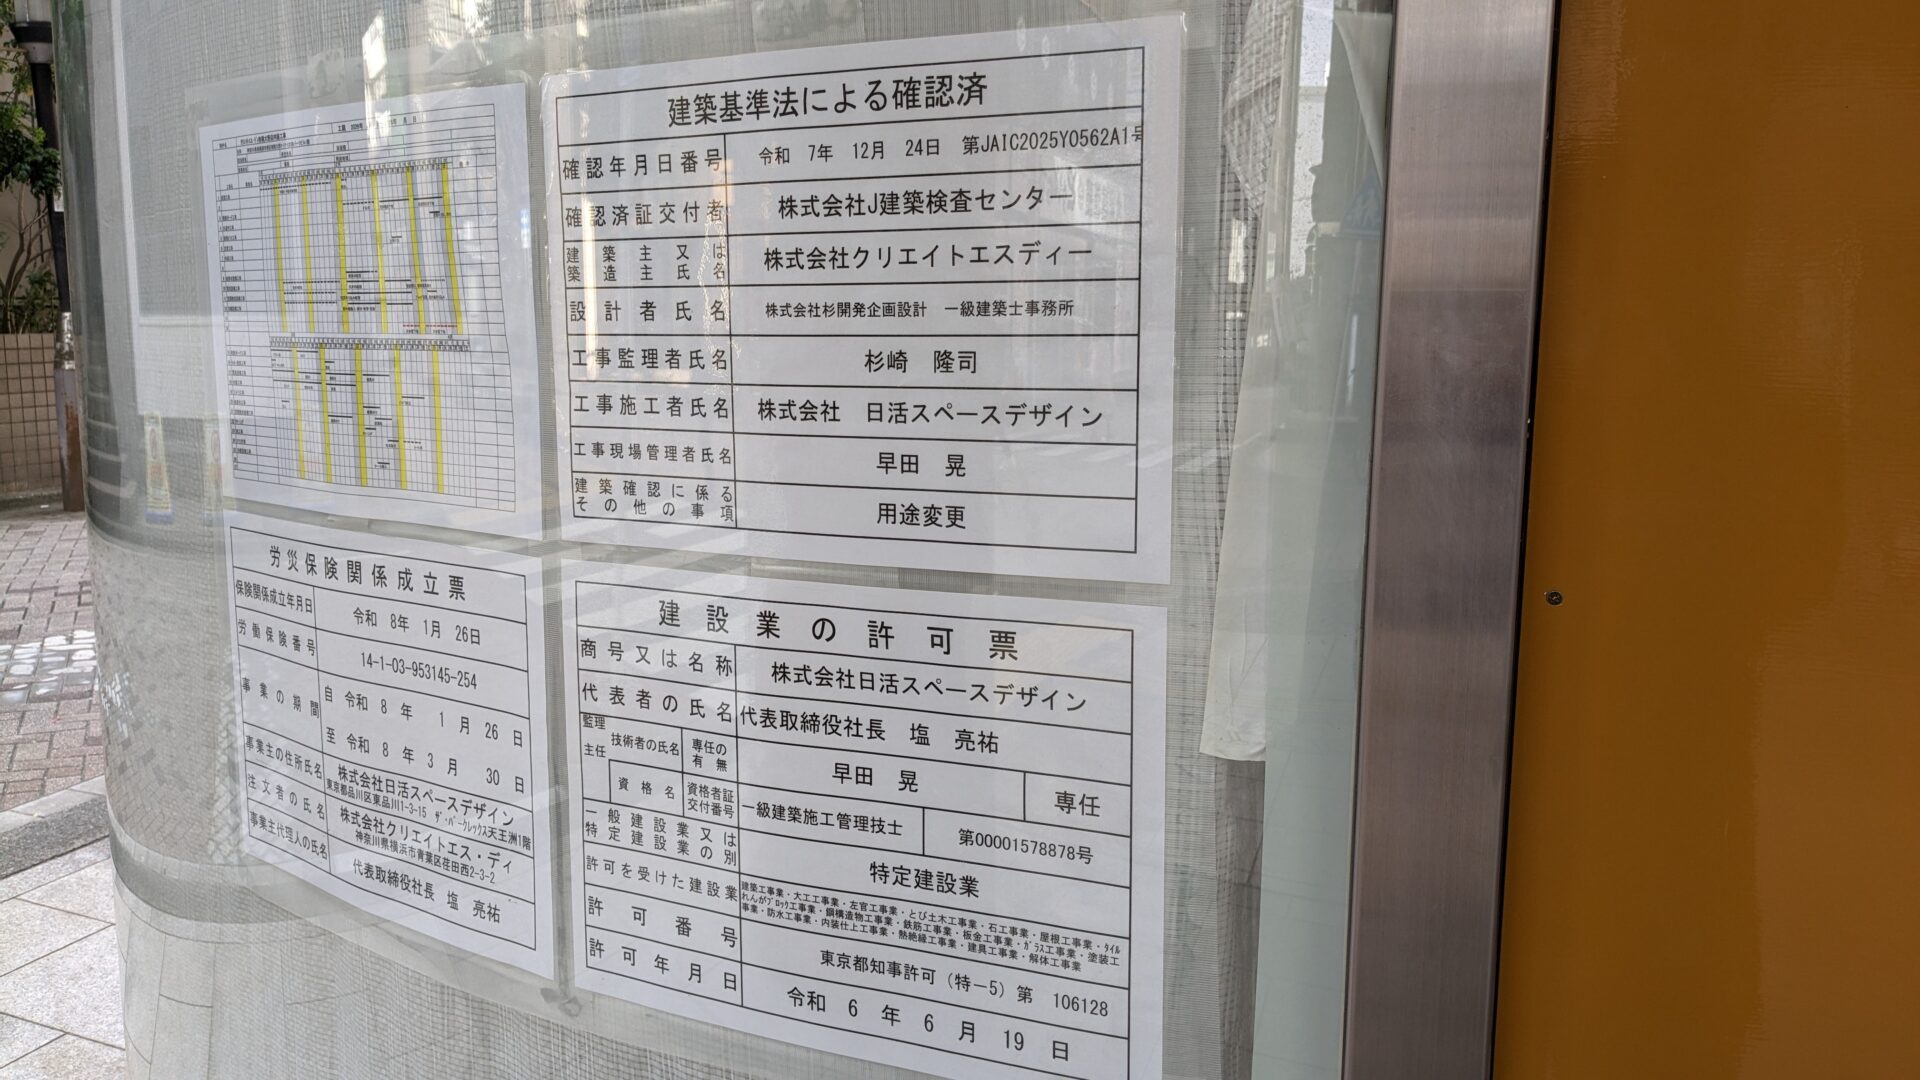 建築基準法による確認済
確認年月日番号 令和 7年 12月 24日 第JAIC2025Y0562A1号
確認済証交付者 株式会社J建築検査センター
建築主又は築造主氏名 株式会社クリエイトエスディー
設計者氏名 株式会社杉開発企画設計 一級建築士事務所
工事監理者氏名 杉崎 隆司
工事施工者氏名 株式会社 日活スペースデザイン
工事現場管理者氏名 早田 晃
建築確認に係るその他の事項 用途変更
労災保険関係成立票
保険関係成立年月日 令和 8年 1月 26日
労働保険番号 14-1-03-953145-254
事業の期間 自 令和 8 年 1 月 26 日
至 令和 8 年 3 月 30 日
事業主の住所氏名 株式会社日活スペースデザイン
東京都品川区東品川1-3-15 ザ・パークレックス天王洲1階
注文者の氏名 株式会社クリエイトエス・ディ
神奈川県横浜市青葉区荏田西2-3-2
事業主代理人の氏名 代表取締役社長 塩 亮祐
建設業の許可票
商号又は名称 株式会社日活スペースデザイン
代表者の氏名 代表取締役社長 塩 亮祐
監理主任 技術者の氏名 専任の有無 早田 晃 専任
資格名 資格者証交付番号 一級建築施工管理技士 第00001578878号
一般建設業又は特定建設業の別 特定建設業
許可を受けた建設業 建築工事業・大工工事業・左官工事業・とび土木工事業・石工事業・屋根工事業・タイル
れんがブロック工事業・鋼構造物工事業・鉄筋工事業・板金工事業・ガラス工事業・塗装工
事業・防水工事業・内装仕上工事業・熱絶縁工事業・建具工事業・解体工事業
許可番号 東京都知事許可（特－5）第 106128
許可年月日 令和 6 年 6 月 19 日